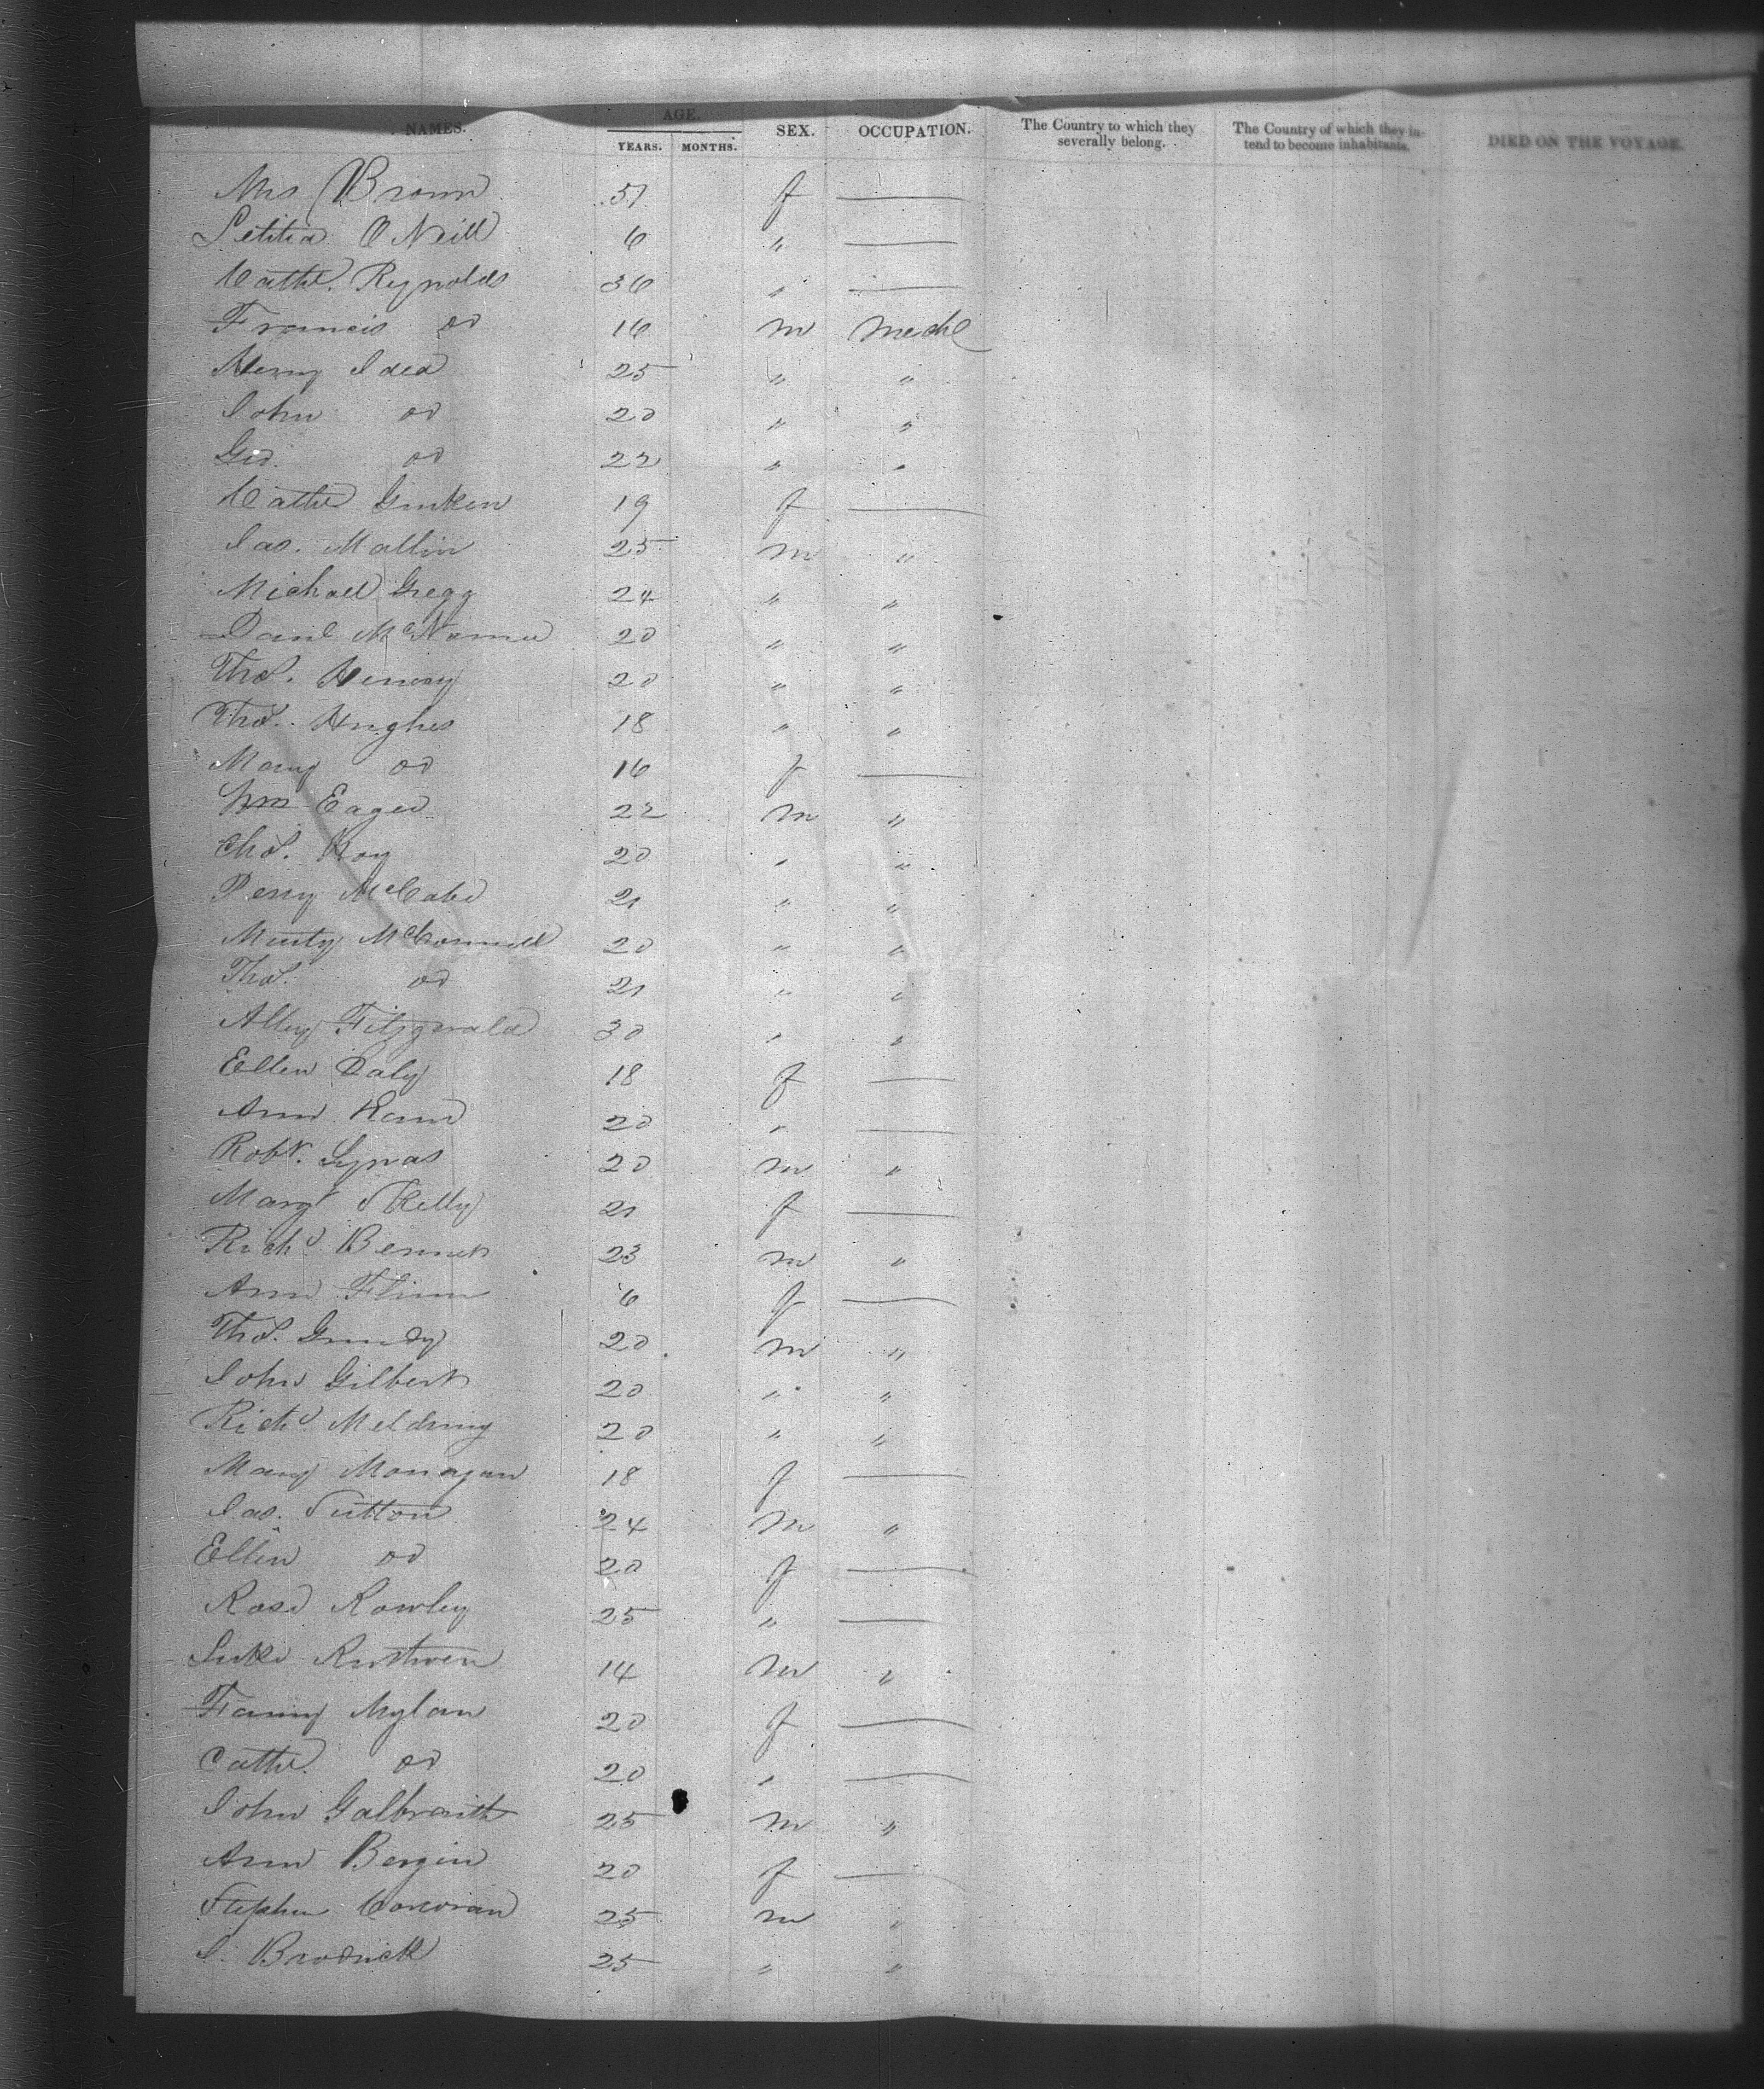 NAMES. AGE. YEARS. MONTHS. SEX. OCCUPATION. The Country to which they severally belong. The Country of which they intend to become inhabitants. DIED ON THE VOYAGE.
Mrs Brown f
Letitia O Neill 6 "
Cathe. Reynolds 36 "
Francis do 16 m Mechc
Henry 25 " "
John do 20 " "
Geo. do 22 " "
Cathe 19 f
Jas. Mallin 25 m "
Michael Gregg 24 " "
Danl McNamee 20 " "
Thos. 20 " "
Thos. Hughes 18 " "
Mary do 16 f
Wm Eager 22 m "
Chs. 20 " "
Perry McCabe 21 " "
McConnell 20 " "
Thos. do 21 " "
Alley Fitzgerald 30 " "
Ellen Daly 18 f
Ann 20 "
Robt. Lynas 20 m "
Margt Skelly 21 f
Richd Bennet 23 m "
Ann Flinn 6 f
Ths. Grundy 20 m "
John Gilbert 20 " "
Richd 20 " "
Mary Monagan 18 f
Jas. Sutton 24 m "
Ellen do 20 f
Rose Rowley 25 "
Luke Ruthven 14 m "
Fanny Mylan 20 f
Cathe. do 20 "
John Galbraith 25 m "
Ann Bergin 20 f
Stephen Corcoran 25 m "
J. Brodrick 25 " "